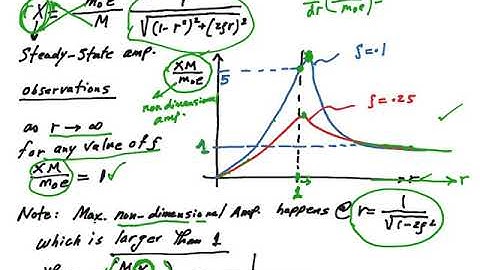 rX = m₀e / M    r / √((1-r²)²+(2ζr)²)
d/dr (XM/m₀e) =
Steady-State amp.
XM/m₀e
non dimensional
amp.
observations
as r → ∞
for any value of ζ
XM/m₀e = 1 ✓
5
1
ζ=.1
ζ=.25
✓
r
1
Note: Max. non-dimensional Amp. happens @ r= 1/√(1-2ζ²)
which is larger than 1